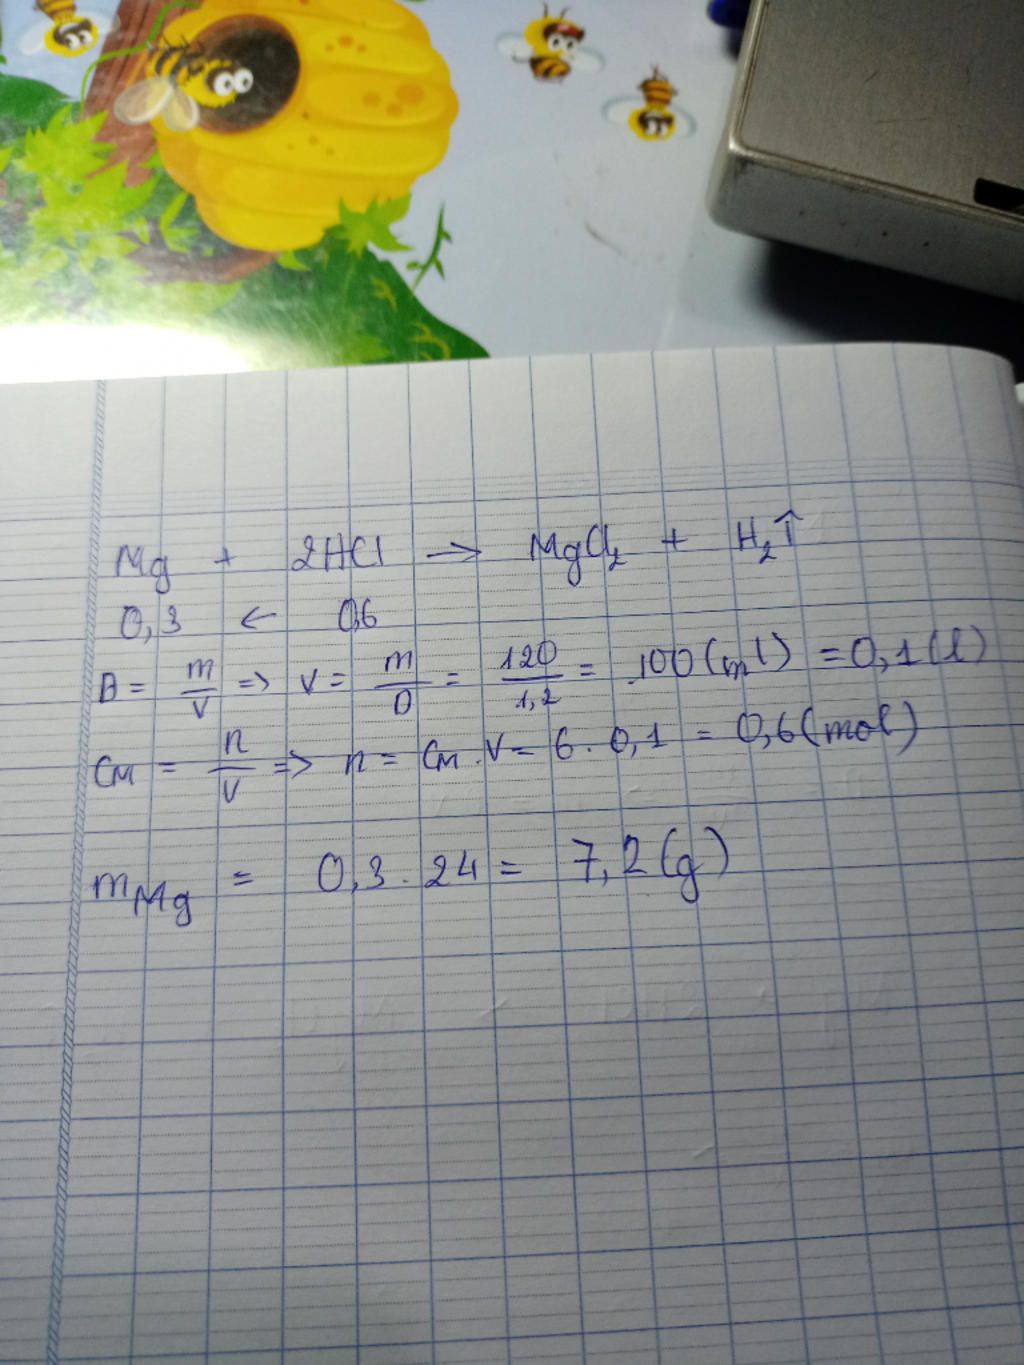 Mg + 2HCl → MgCl₂ + H₂↑
0,3 ← 0,6
D = m/V => V = m/D = 120/1,2 = 100(ml) = 0,1(l)
CM = n/V => n = CM.V = 6.0,1 = 0,6(mol)
mMg = 0,3.24 = 7,2(g)